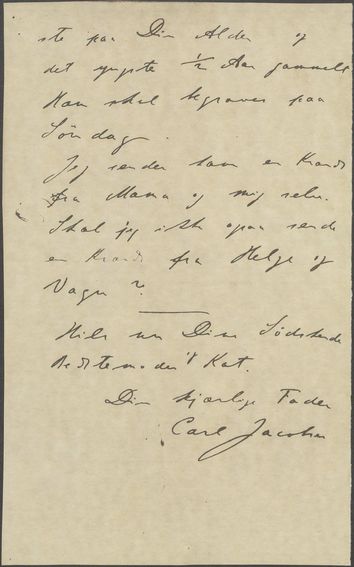 ste paa Din Alder og
det yngste 1/2 Aar gammelt
Han skal begraves paa
Söndag.
Jeg sender ham en Krands
fra Mama og mig selv.
Skal jeg ikke ogsaa sende
en Krands fra Helge og
Vagn?
Hils nu Dine Södskende
Bedstemoder & Kat.
Din kjærlige Fader
Carl Jacobsen